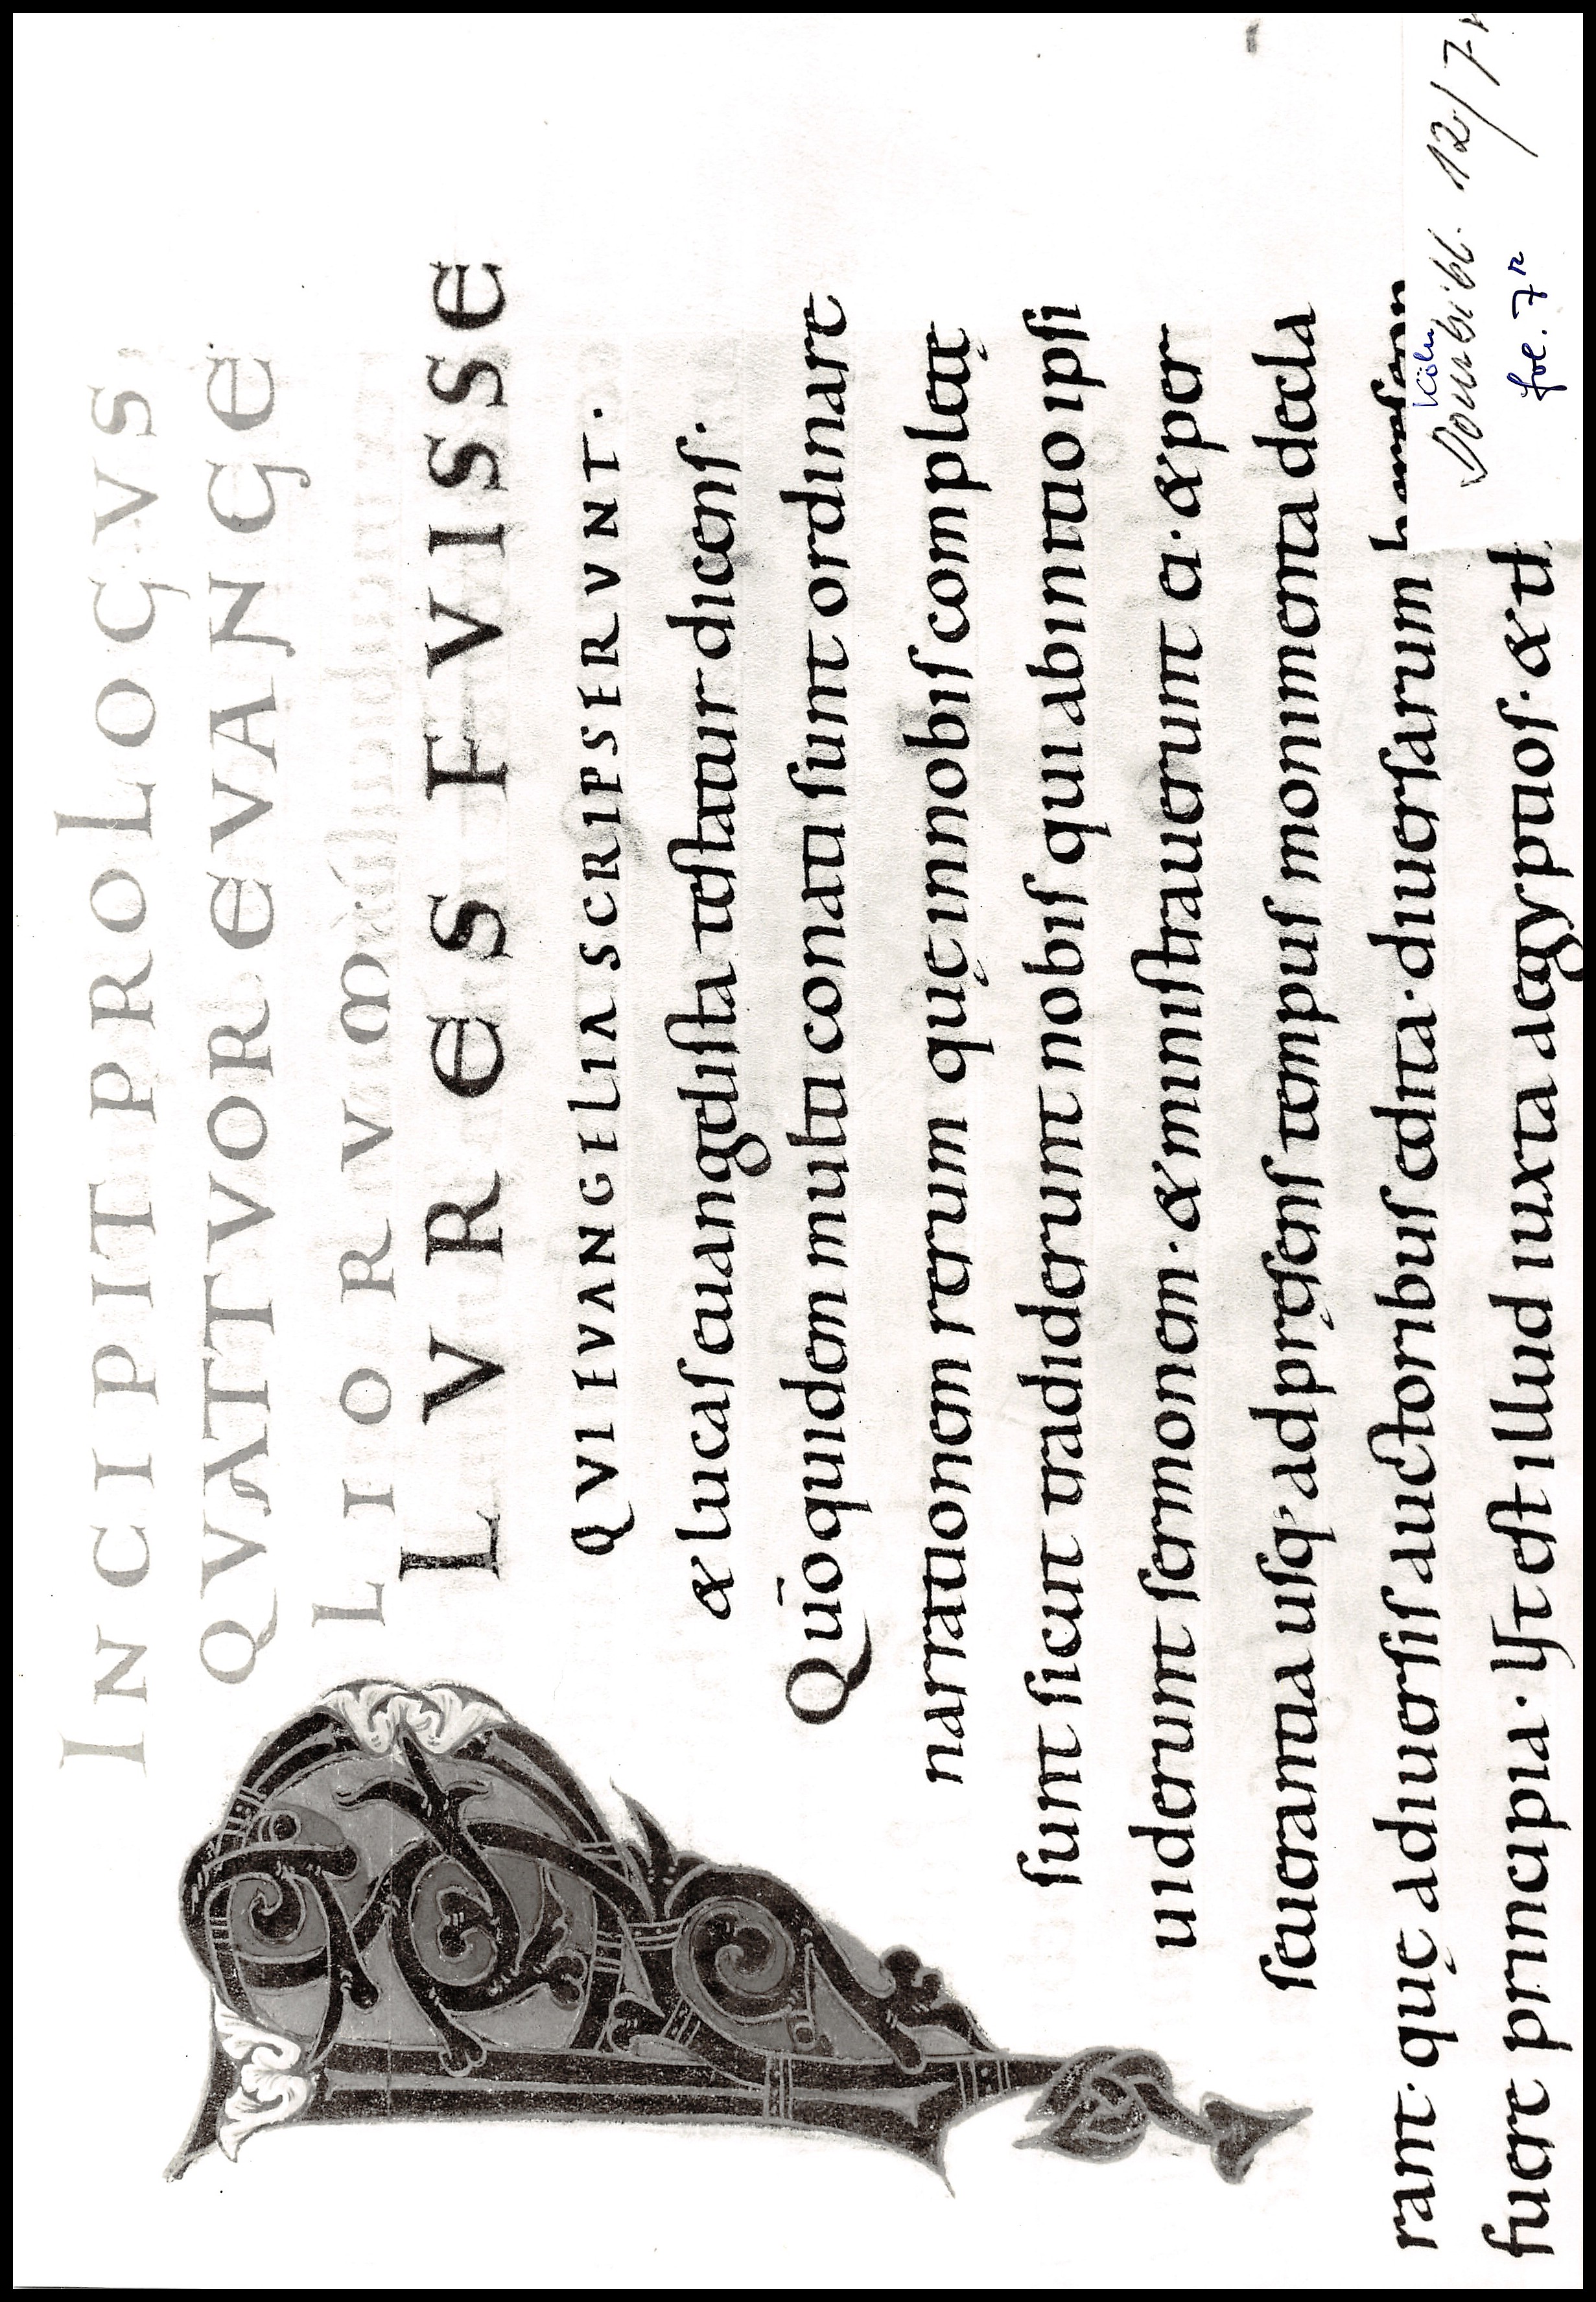 INCIPIT PROLOGVS
QVATTVOR EVANGE
LIORVM
PLVRES FVISSE
QVI EVANGELIA SCRIPSERVNT.
& lucas euangelista testatur dicens.
Quō quidem multi conati sunt ordinare
narrationem rerum quę in nobis complętę
sunt sicut tradiderunt nobis qui ab initio ipsi
uiderunt sermonem. & ministrauerunt ei. & per
seuerantia usq; ad pręsens tempus monimenta decla
rant. quę a diuersis auctoribus edita. diuersarum
fuere principia. Ut est illud iuxta aegyptios. &
Köln
Dombibl. 12/7r
fol. 7r